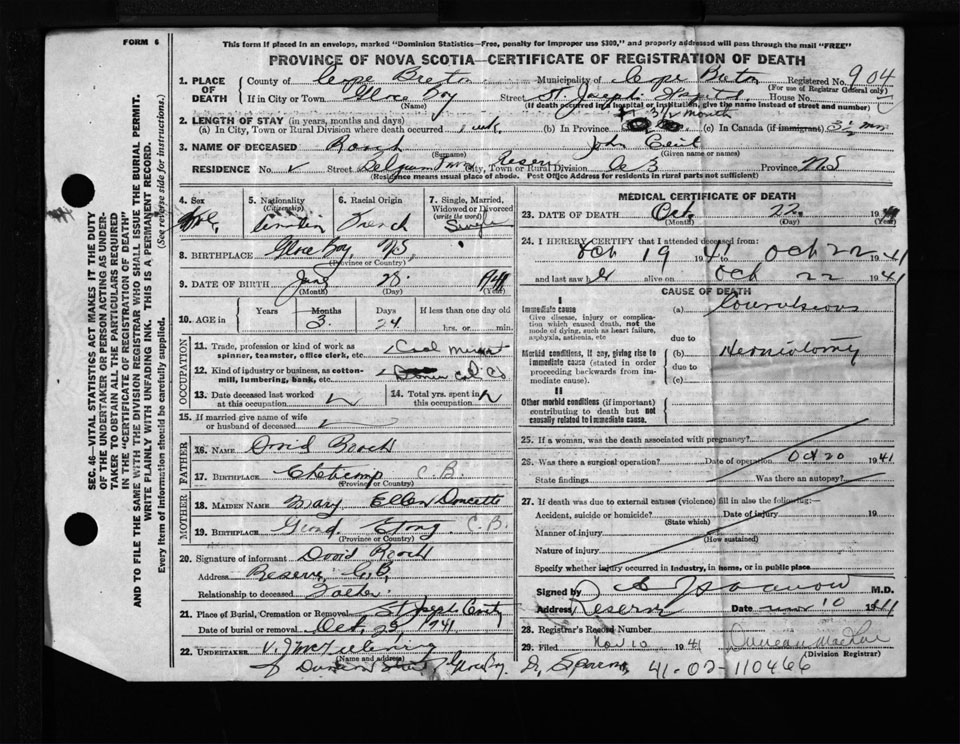 FORM 6
This form if placed in an envelope, marked "Dominion Statistics—Free, penalty for improper use $300," and properly addressed will pass through the mail "FREE"
PROVINCE OF NOVA SCOTIA—CERTIFICATE OF REGISTRATION OF DEATH
SEC. 46—VITAL STATISTICS ACT MAKES IT THE DUTY
OF THE UNDERTAKER OR PERSON ACTING AS UNDER-
TAKER TO OBTAIN ALL THE PARTICULARS REQUIRED
IN THE "CERTIFICATE OF REGISTRATION OF DEATH"
AND TO FILE THE SAME WITH THE DIVISION REGISTRAR WHO SHALL ISSUE THE BURIAL PERMIT.
WRITE PLAINLY WITH UNFADING INK. THIS IS A PERMANENT RECORD.
Every item of information should be carefully supplied. (See reverse side for instructions).
1. PLACE OF DEATH County of Cape Breton Municipality of Cape Breton Registered No. 904
(For use of Registrar General only)
If in City or Town Glace Bay Street St. Joseph Hospital House No.
(Name) (If death occurred in a hospital or institution, give the name instead of street and number)
2. LENGTH OF STAY (in years, months and days) month
(a) In City, Town or Rural Division where death occurred 1 wk. (b) In Province (c) In Canada (if immigrant)
3. NAME OF DECEASED Roach John
(Surname) (Given name or names)
RESIDENCE No. Street Belgium Town Reserve City, Town or Rural Division C B Province N S
(Residence means usual place of abode. Post Office Address for residents in rural parts not sufficient)
4. Sex
5. Nationality (Citizenship) Canadian
6. Racial Origin French
7. Single, Married, Widowed or Divorced (write the word) Single
8. BIRTHPLACE Glace Bay N.S.
(Province or Country)
9. DATE OF BIRTH 28
(Month) (Day) (Year)
10. AGE in Years Months 3 Days 24 If less than one day old hrs. or min.
OCCUPATION
11. Trade, profession or kind of work as spinner, teamster, office clerk, etc.
12. Kind of industry or business, as cotton-mill, lumbering, bank, etc.
13. Date deceased last worked at this occupation
14. Total yrs. spent in this occupation
15. If married give name of wife or husband of deceased
FATHER
16. NAME David Roach
17. BIRTHPLACE Cheticamp C.B.
(Province or Country)
MOTHER
18. MAIDEN NAME Mary Ellen Doucette
19. BIRTHPLACE Grand Etang C.B.
(Province or Country)
20. Signature of informant David Roach
Address Reserve C.B.
Relationship to deceased Father
21. Place of Burial, Cremation or Removal St Joseph
Date of burial or removal Oct. 23 1941
22. UNDERTAKER V. J.
(Name and address)
Glace Bay
MEDICAL CERTIFICATE OF DEATH
23. DATE OF DEATH Oct. 22 1941
(Month) (Day) (Year)
24. I HEREBY CERTIFY that I attended deceased from:
Oct 19 1941 to Oct 22 1941
and last saw h alive on Oct 22 1941
CAUSE OF DEATH
I
Immediate cause (a) Convulsions
Give disease, injury or complication which caused death, not the mode of dying, such as heart failure, asphyxia, asthenia, etc
due to
Morbid conditions, if any, giving rise to immediate cause (stated in order proceeding backwards from immediate cause). (b) Herniotomy
due to
(c)
II
Other morbid conditions (if important) contributing to death but not causally related to immediate cause.
25. If a woman, was the death associated with pregnancy?
26. Was there a surgical operation? Date of operation Oct 20 1941
State findings Was there an autopsy?
27. If death was due to external causes (violence) fill in also the following:—
Accident, suicide or homicide? Date of injury 19
(State which)
Manner of injury
(How sustained)
Nature of injury
Specify whether injury occurred in industry, in home, or in public place
Signed by M.D.
Address Reserve Date Nov 10 1941
28. Registrar's Record Number
29. Filed Nov 10 1941 Duncan MacRae
(Division Registrar)
41-02-110466